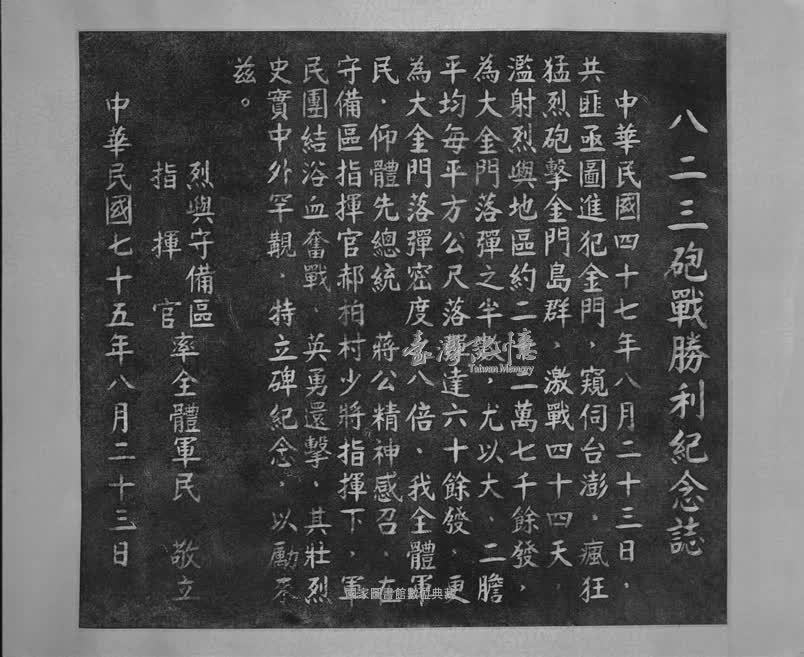 八二三砲戰勝利紀念誌
中華民國四十七年八月二十三日，
共匪亟圖進犯金門，窺伺台澎，瘋狂
猛烈砲擊金門島群，激戰四十四天，
濫射烈嶼地區約二二萬七千餘發，
為大金門落彈之半，尤以大、二膽
平均每平方公尺落彈達六十餘發，更
為大金門落彈密度八倍，我全體軍
民，仰體先總統　蔣公精神感召，在
守備區指揮官郝柏村少將指揮下，軍
民團結浴血奮戰、英勇還擊，其壯烈
史實中外罕覯，特立碑紀念，以勵來
茲。
烈嶼守備區
指揮官　率全體軍民　敬立
中華民國七十五年八月二十三日
臺灣記憶
Taiwan Memory
國家圖書館數位典藏